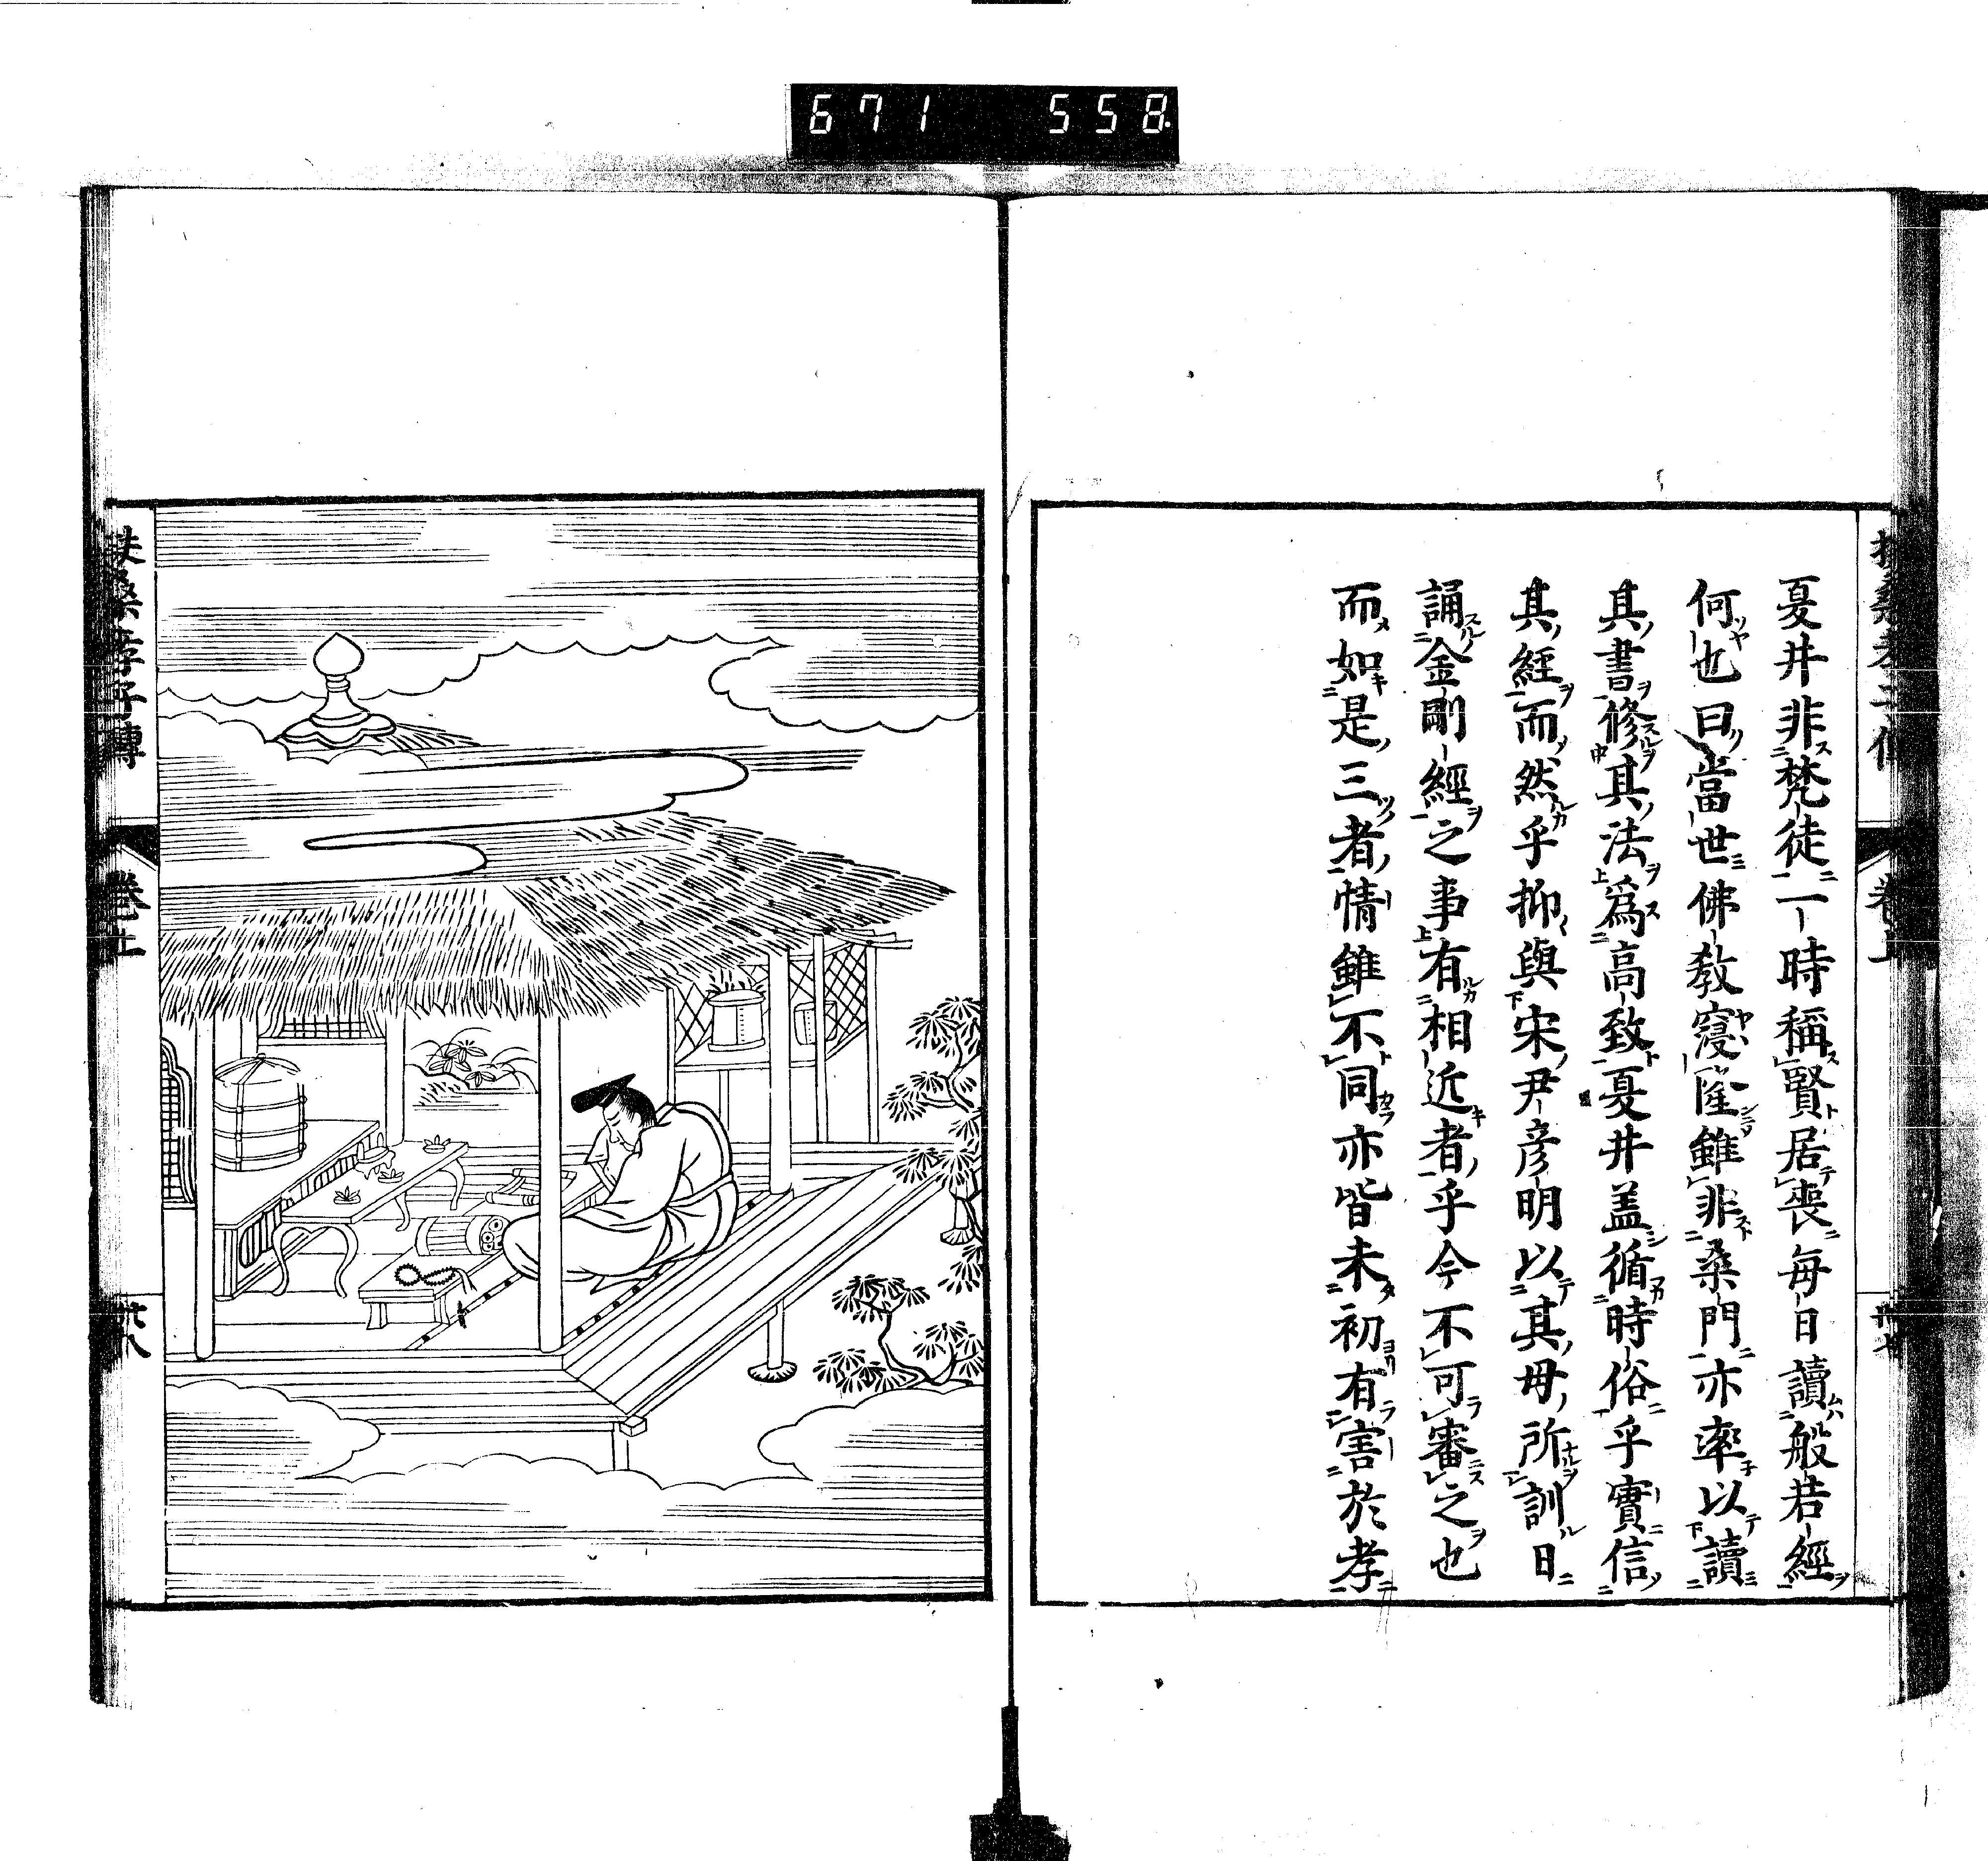 671 558
夏井非梵徒一時稱賢居喪毎日讀般若經
何也曰當世佛教寖隆雖非桑門亦率以讀
其書修其法爲高致夏井盖循時俗乎實信
其經而然乎抑與宋尹彦明以其母所訓日
誦金剛經之事有相近者乎今不可審之也
而如是三者情雖不同亦皆未初有害於孝
扶桑孝子傳
卷上